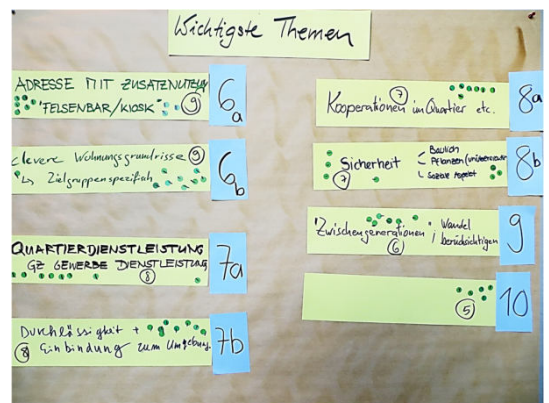 Wichtigste Themen
ADRESSE MIT ZUSATZNUTZEN
"FELSENBAR/KIOSK" 9
6a
clevere Wohnungsgrundrisse 9
↳ Zielgruppenspezifisch
6b
QUARTIERDIENSTLEISTUNG
GZ GEWERBE DIENSTLEISTUNG
8
7a
Durchlässigkeit +
8 Einbindung zum Umgebung
7b
7
Kooperationen im Quartier etc.
8a
Baulich
Sicherheit Pflanzen
7 Soziale Aspekt
8b
"Zwischengenerationen", Wandel
6 berücksichtigen
9
5
10